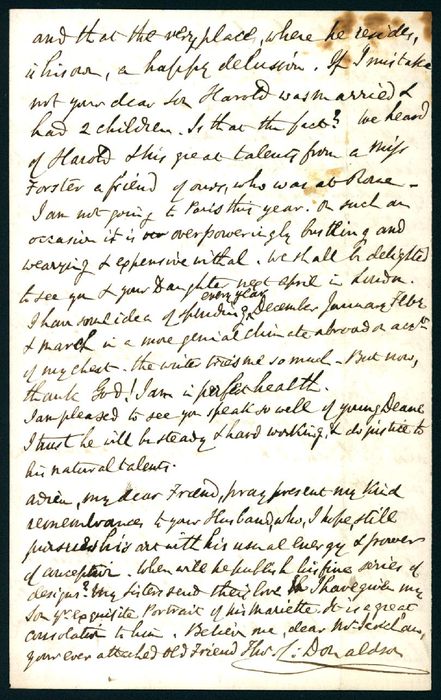 and that the very place, where he resides,
is his own, a happy delusion. If I mistake
not your dear son Harold was married &
had 2 children. Is that the fact? We heard
of Harold & his great talents from a Miss
Forster a friend of ours, who was at Rome -
I am not going to Paris this year. On such an
occasion it is overpoweringly bustling and
wearying & expensive withal. We shall be delighted
to see you & your Daughter next April in London.
I have some idea of spending every year December January Feby
& March in a more genial climate abroad on acct
of my chest - the winter tries me so much - But now,
thank God! I am in perfect health.
I am pleased to see you speak so well of young Deane
I trust he will be steady & hard working, & do justice to
his natural talents.
adieu, my dear Friend, pray present my kind
remembrances to your Husband, who, I hope still
pursues his art with his usual energy & powers
of conception. When will he publish his fine series of
designs? My Sisters send their love. I have given my
son yr exquisite Portrait of his Mariette. It is a great
consolation to him. Believe me, dear Mrs
your ever attached old Friend Thos. L. Donaldson